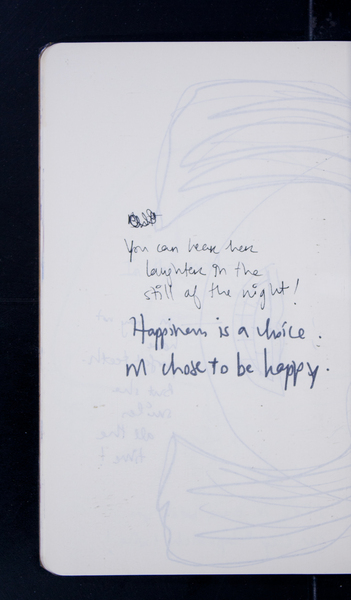 You can hear her
laughter in the
still of the night!
Happiness is a choice.
M chose to be happy.